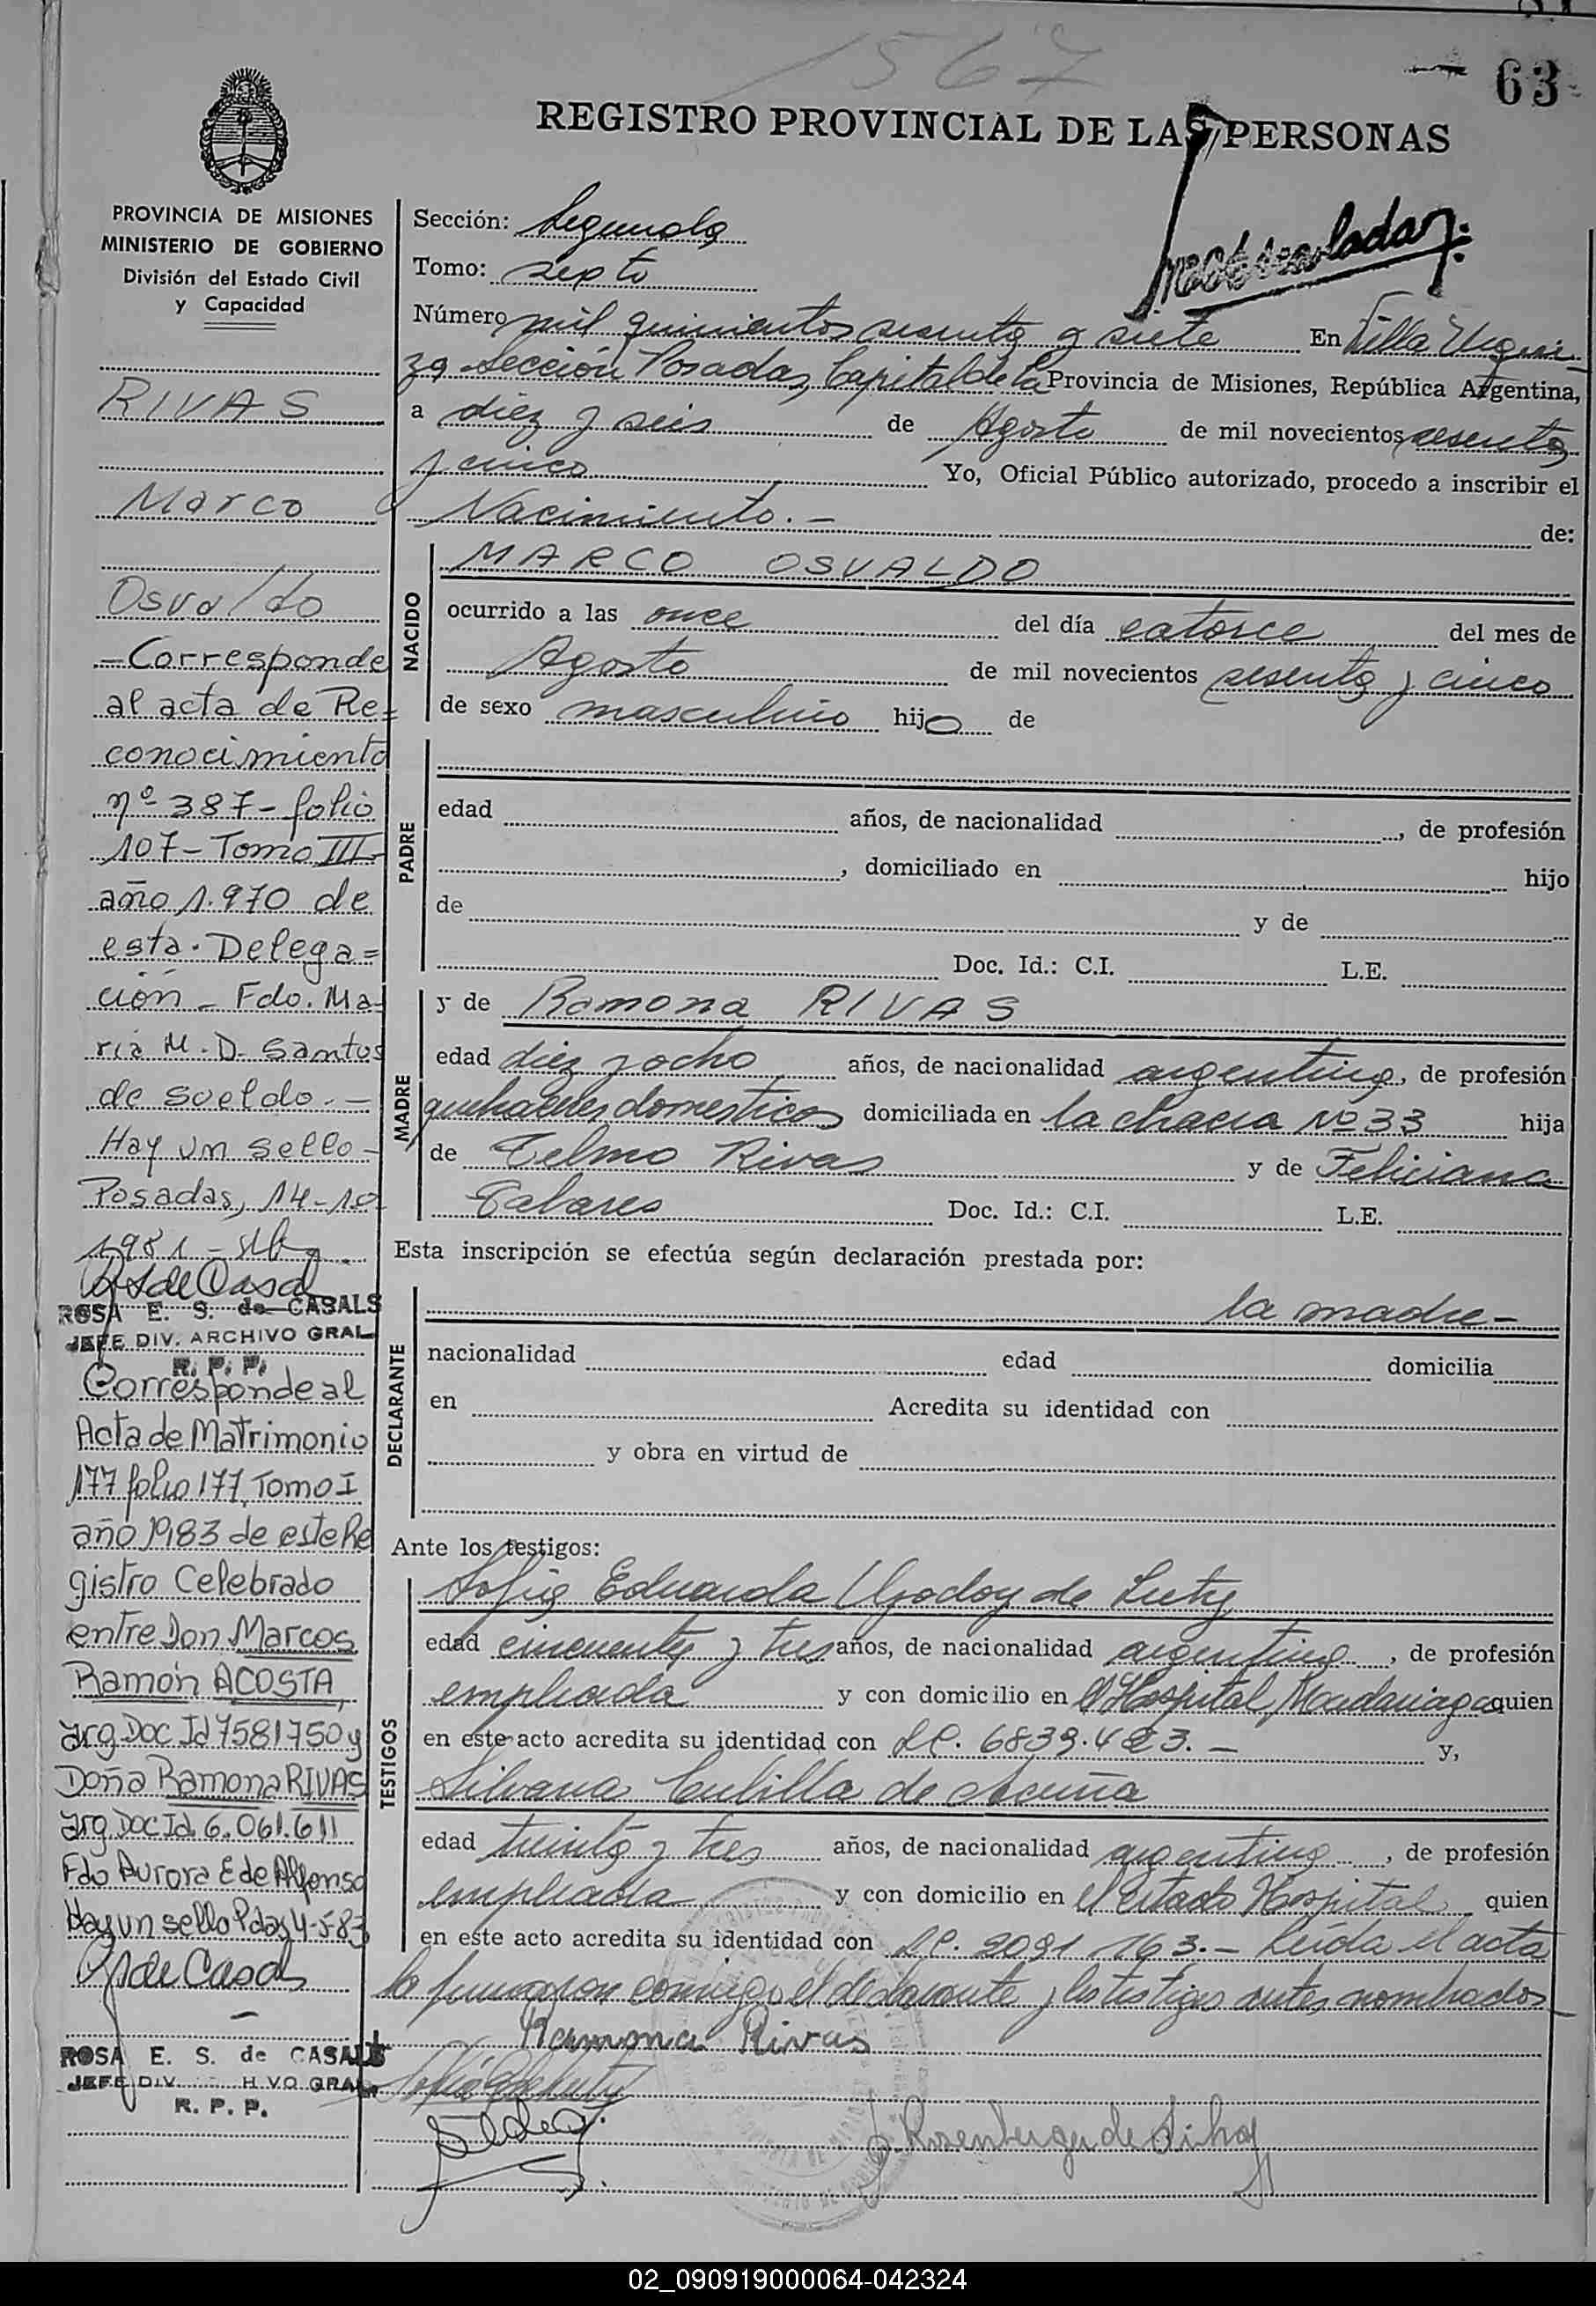 1567
63
REGISTRO PROVINCIAL DE LAS PERSONAS
PROVINCIA DE MISIONES
MINISTERIO DE GOBIERNO
División del Estado Civil
y Capacidad
RIVAS
Marco
Osvaldo
-Corresponde
al acta de Re=
conocimiento
nº 387- folio
107- Tomo III-
año 1.970 de
esta. Delega=
ción - Fdo. Ma
ría M. D. Santos
de Sueldo.-
Hay un sello-
Posadas, 14-10
1981-
ROSA E. S. de CASALS
JEFE DIV. ARCHIVO GRAL
R. P. P.
Corresponde al
Acta de Matrimonio
177 folio 177 Tomo I
año 1983 de este Re
gistro Celebrado
entre Don Marcos
Ramón ACOSTA,
arg Doc Id 7581750 y
Doña Ramona RIVAS
arg. Doc Id. 6.061.611
Fdo Aurora E de Alfonso
Hay un sello Pdas 4-5-83
ROSA E. S. de CASALS
JEFE DIV. H VO GRAL.
R. P. P.
Sección: Segunda
Tomo: septo
Número mil quinientos sesenta y siete En Villa Urqui-
za Sección Posadas, Capital de la Provincia de Misiones, República Argentina,
a diez y seis de Agosto de mil novecientos sesenta
y cinco Yo, Oficial Público autorizado, procedo a inscribir el
Nacimiento.- de:
NACIDO
MARCO OSVALDO
ocurrido a las once del día catorce del mes de
Agosto de mil novecientos sesenta y cinco
de sexo masculino hijo de
PADRE
edad años, de nacionalidad , de profesión
, domiciliado en hijo
de y de
Doc. Id.: C.I. L.E.
MADRE
y de Ramona RIVAS
edad diez y ocho años, de nacionalidad argentina, de profesión
quehaceres domesticos domiciliada en la chacra Nº 33 hija
de Telmo Rivas y de Feliciana
Tabares Doc. Id.: C.I. L.E.
Esta inscripción se efectúa según declaración prestada por:
DECLARANTE
la madre-
nacionalidad edad domicilia
en Acredita su identidad con
y obra en virtud de
Ante los testigos:
TESTIGOS
Sofia Eduarda Godoy de
edad cincuenta y tres años, de nacionalidad argentina, de profesión
empleada y con domicilio en el Hospital Madariaga quien
en este acto acredita su identidad con LC. y,
Silvana Cubilla de Acuña
edad treinta y tres años, de nacionalidad argentina, de profesión
empleada y con domicilio en el citado Hospital quien
en este acto acredita su identidad con LC. 2091 163.- Leída el acta
la firmaron conmigo el declarante y los testigos antes nombrados-
Ramona Rivas
02_090919000064-042324